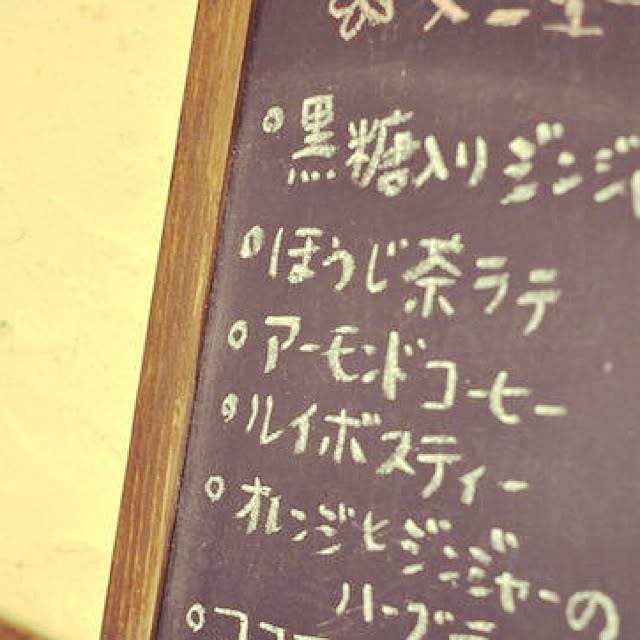 メニュー
黒糖入りジンジャ
ほうじ茶ラテ
アーモンドコーヒー
ルイボスティー
オレンジとジンジャーの
ハーブティ
ココア